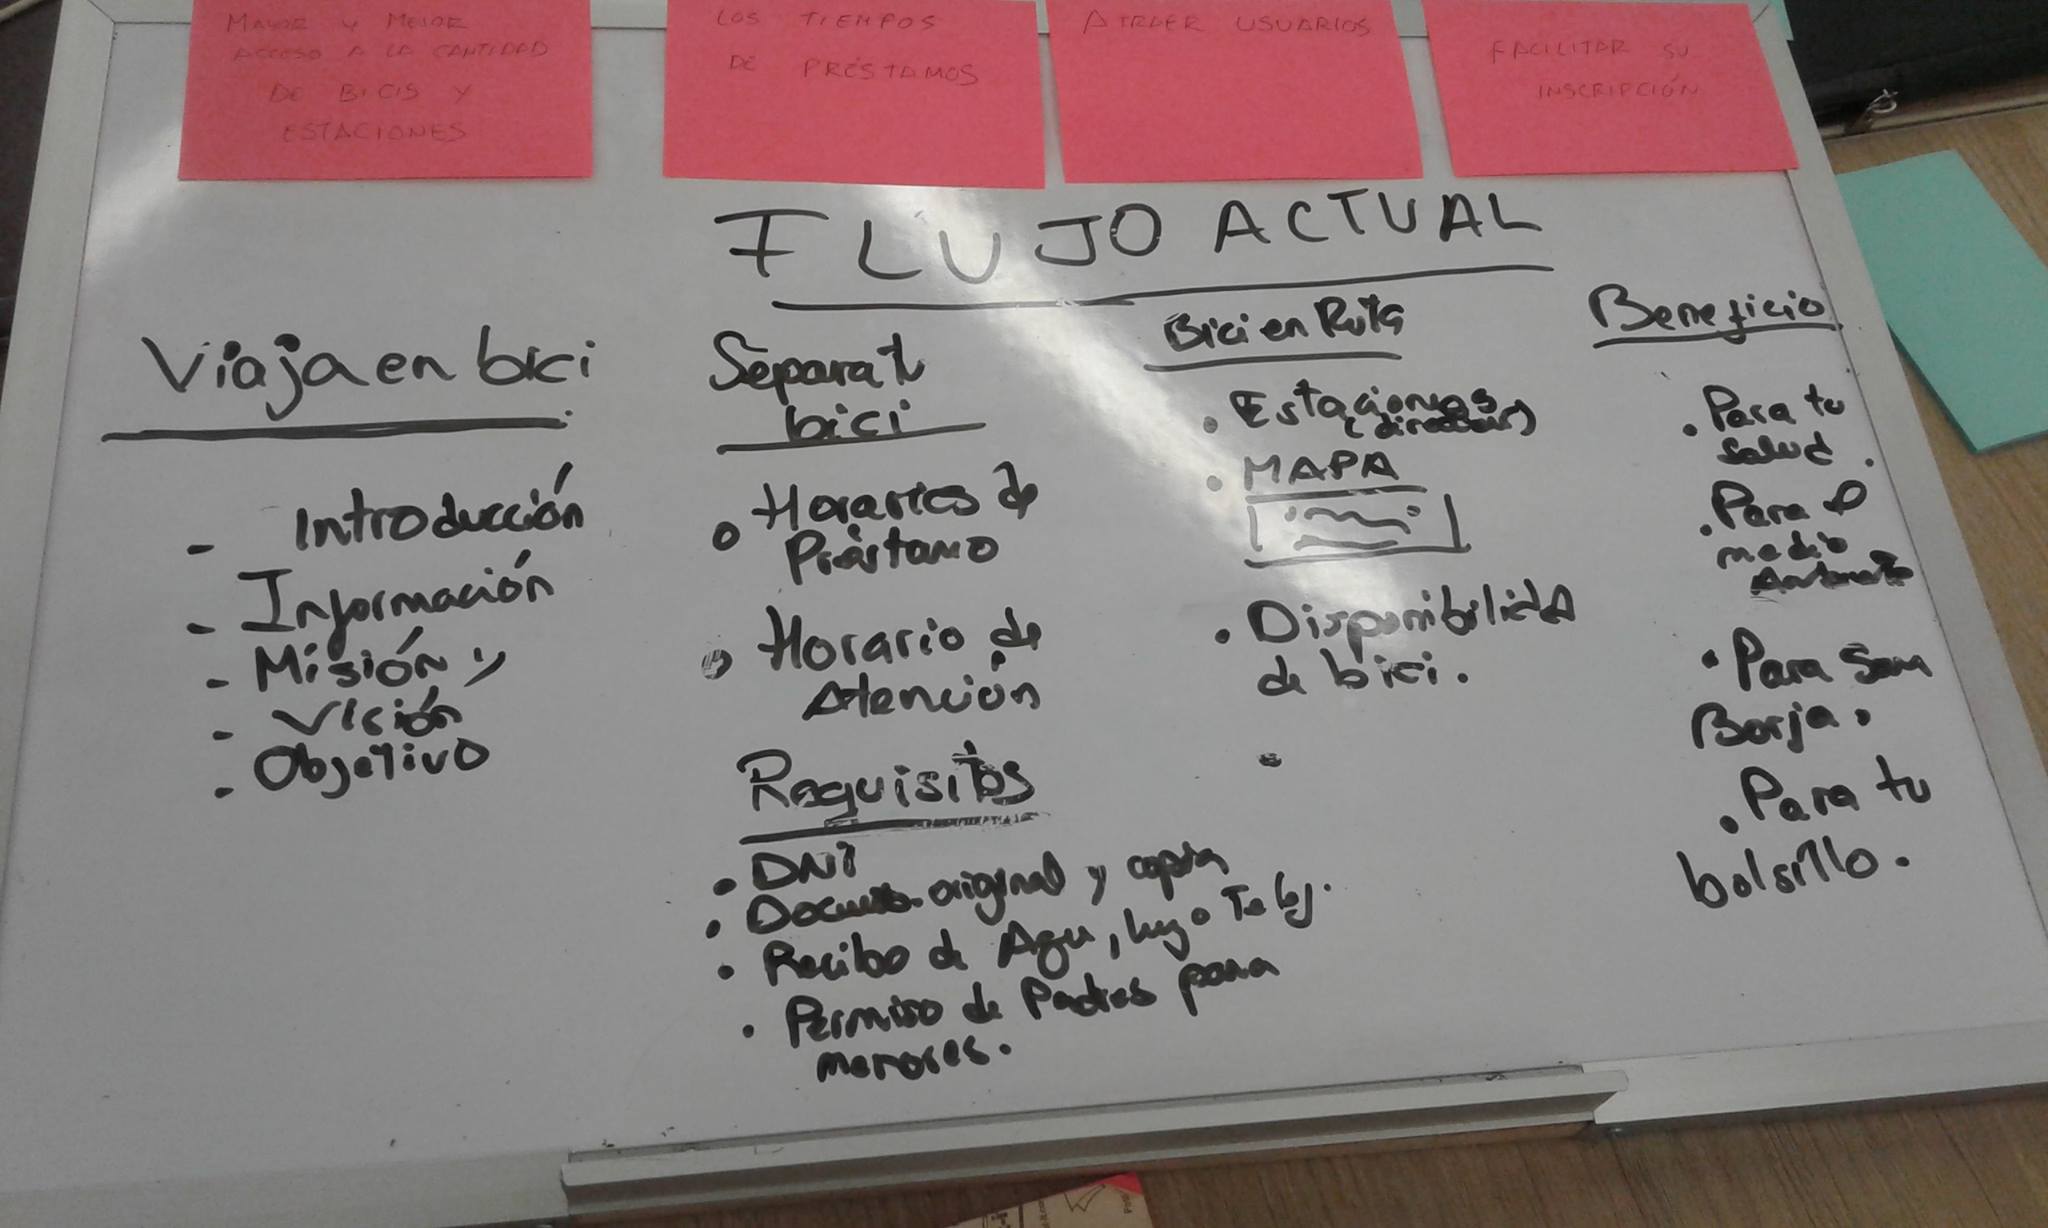 MAYOR Y MEJOR
ACCESO A LA CANTIDAD
DE BICIS Y
ESTACIONES
LOS TIEMPOS
DE PRÉSTAMOS
ATRAER USUARIOS
FACILITAR SU
INSCRIPCIÓN
FLUJO ACTUAL
Viaja en bici
- Introducción
- Información
- Misión y
- Visión
- Objetivo
Separa tu
bici
Horarios de
Préstamo
Horario de
Atención
Requisitos
• DNI
• original y copia
• Recibo de Agua, luz o Telef.
• Permiso de Padres para
menores.
Bici en Ruta
• Estaciones
• MAPA
• Disponibilidad
de bici.
Beneficio
• Para tu
salud.
• Para el
medio
Ambiente
• Para San
Borja.
• Para tu
bolsillo.